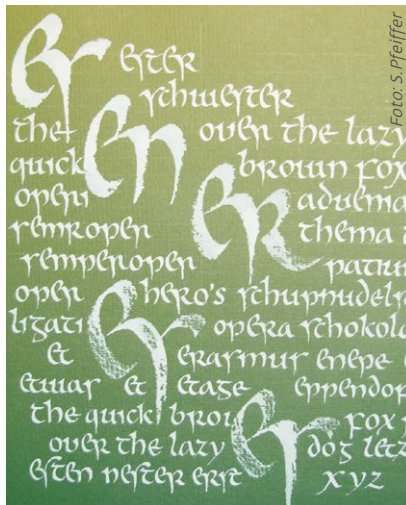 Foto: S. Pfeiffer
er ester
schwester
the en over the lazy
quick brown fox
open er
thema
open hero's
ligati er opera schokola
et erasmus enepe
etwas et etage eppendor
the quick brow er fox
over the lazy dog letz
esten nester erst xyz